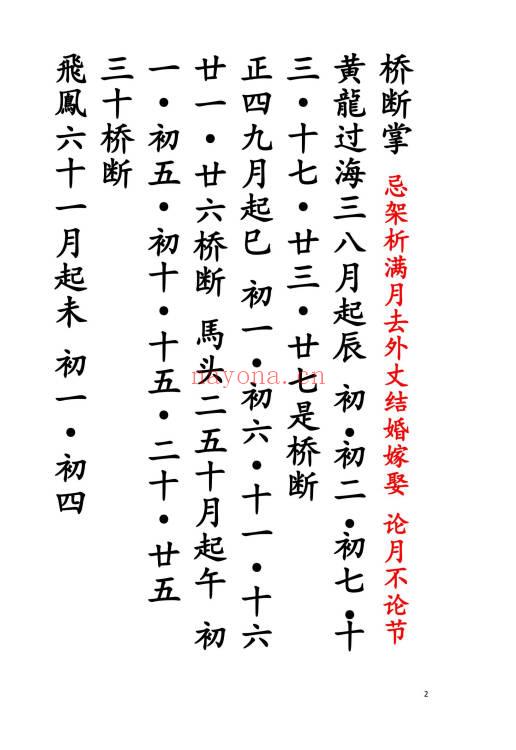 桥断掌 忌架析满月去外丈结婚嫁娶 论月不论节
黄龍过海三八月起辰 初•初二•初七•十
三•十七•廿三•廿七是桥断
正四九月起巳 初一•初六•十一•十六
廿一•廿六桥断 馬头二五十月起午 初
一•初五•初十•十五•二十•廿五
三十桥断
飛鳳六十一月起未 初一•初四
nayona.cn
2